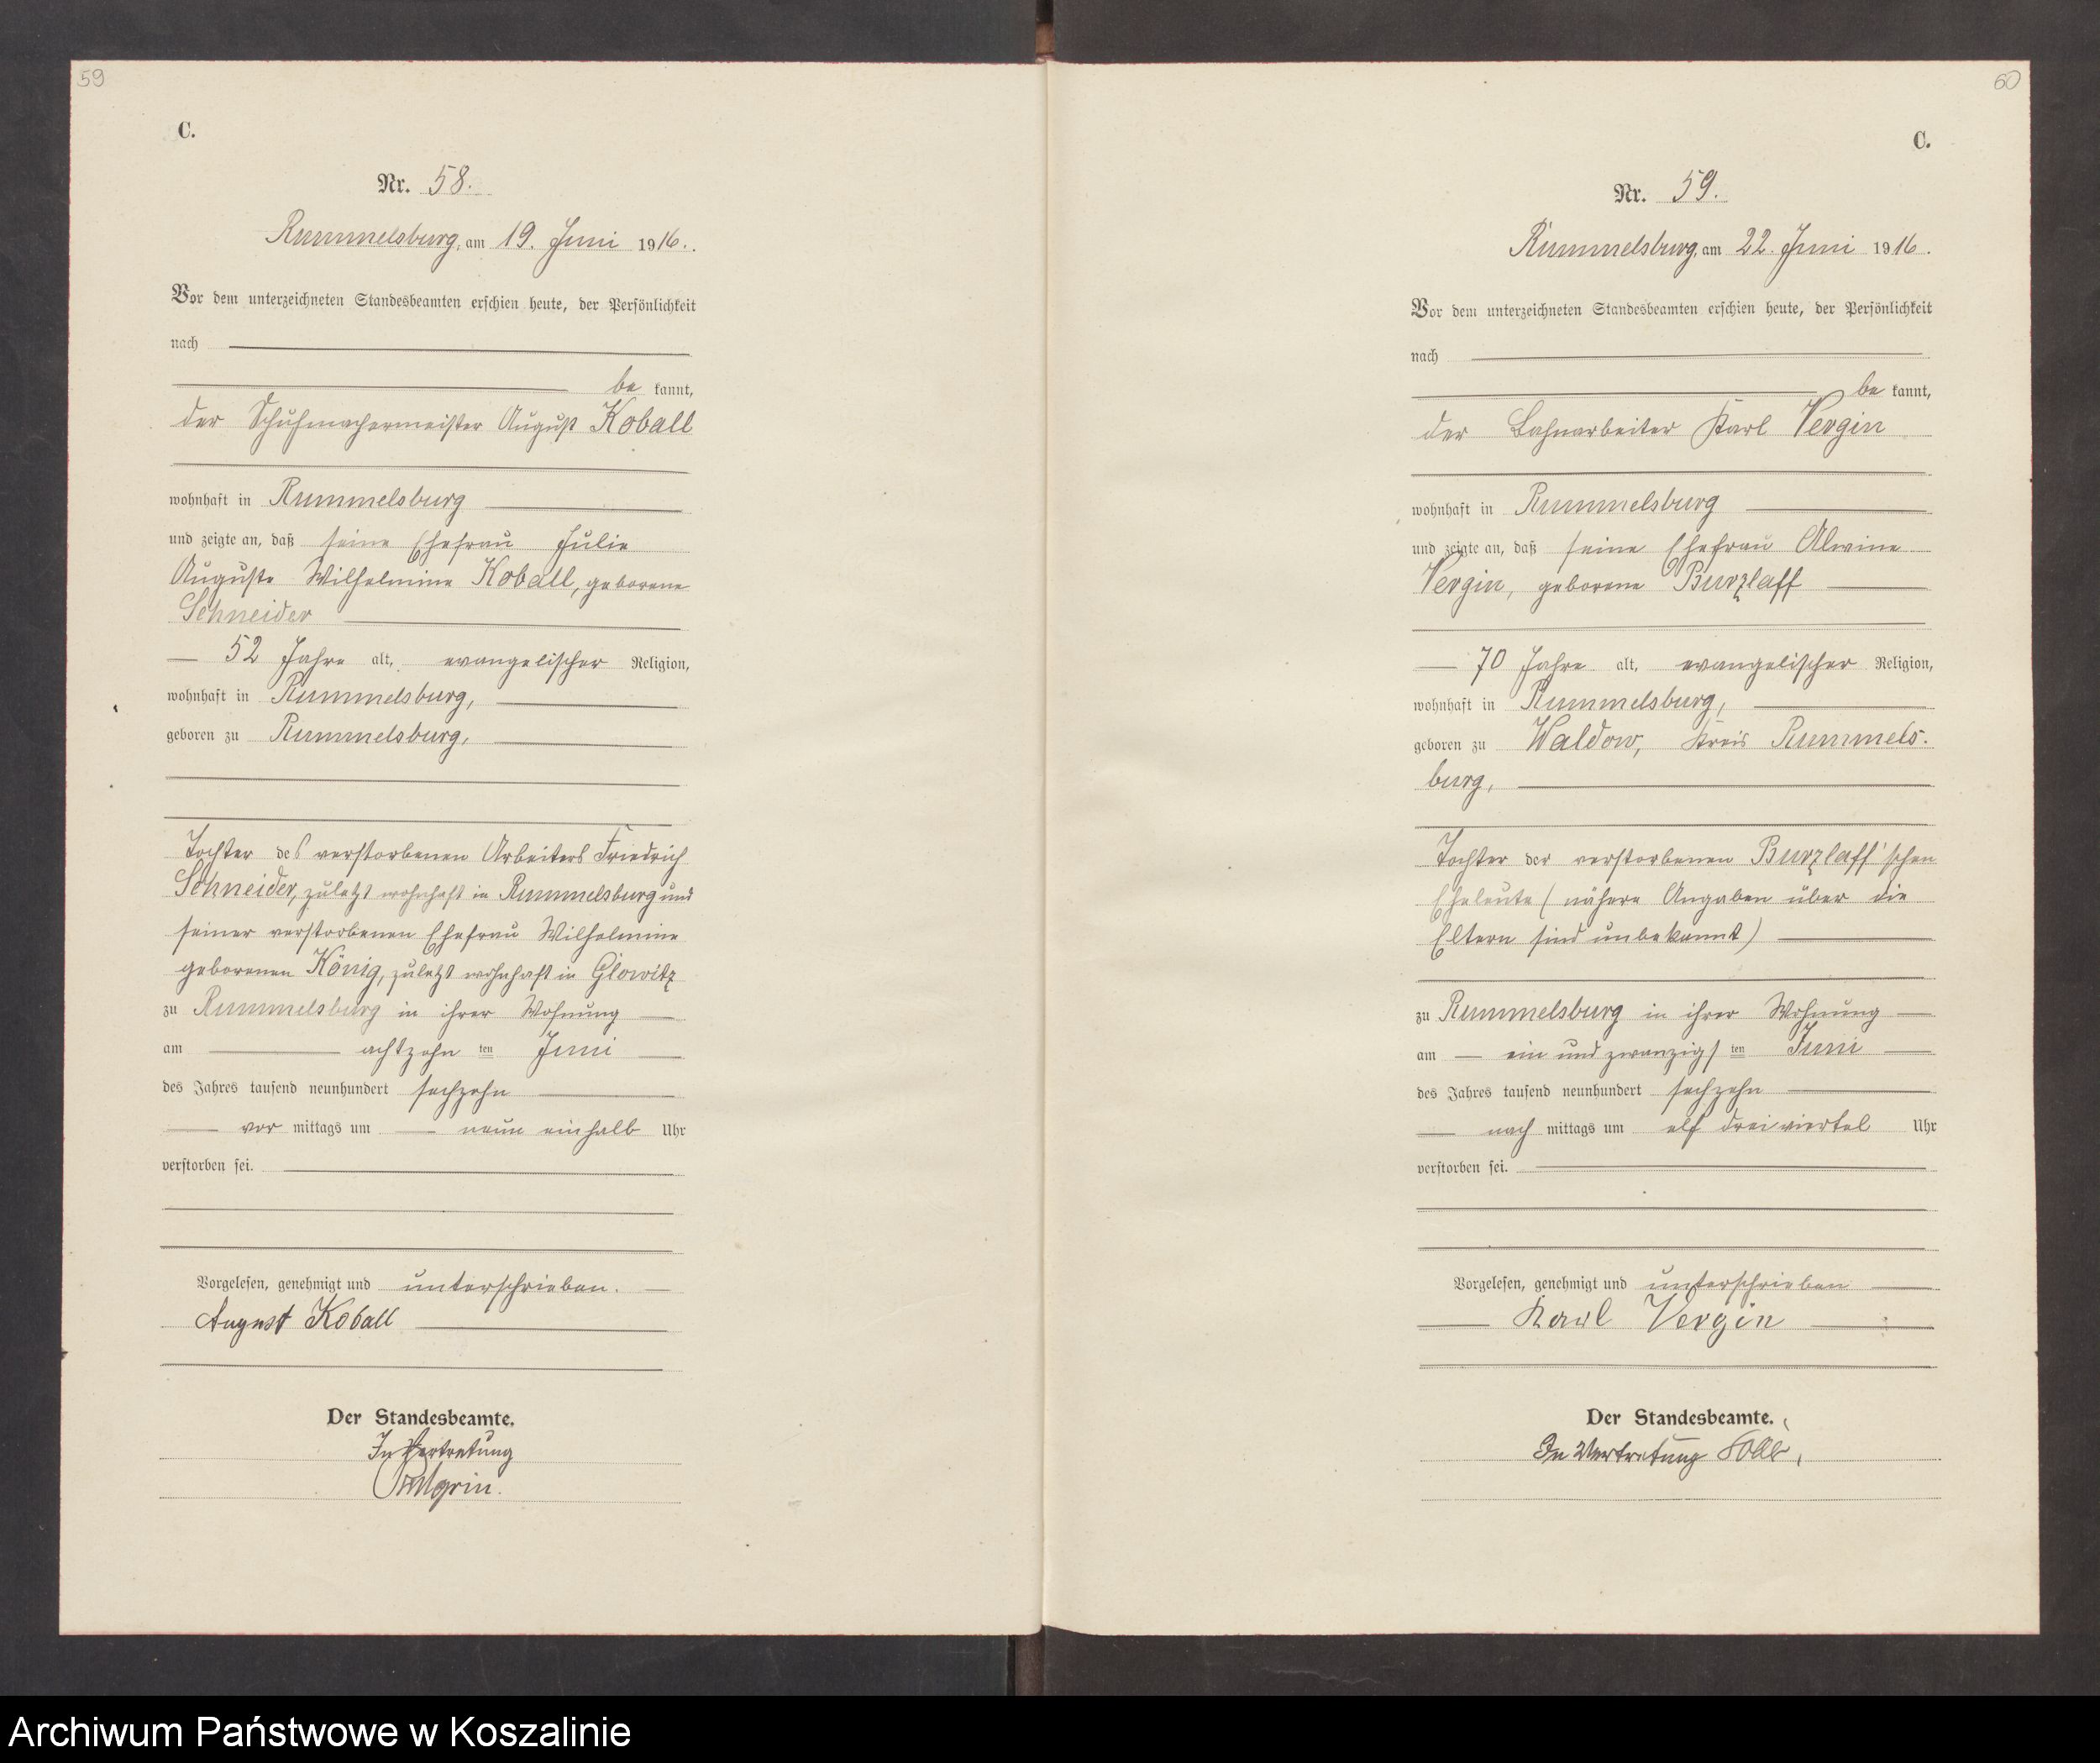 59
C.
Nr. 58.
Rummelsburg, am 19. Juni 1916.
Vor dem unterzeichneten Standesbeamten erschien heute, der Persönlichkeit
nach
be kannt,
der Schuhmachermeister August Koball
wohnhaft in Rummelsburg
und zeigte an, daß seine Ehefrau Julie
Auguste Wilhelmine Koball, geborene
Schneider
52 Jahre alt, evangelischer Religion,
wohnhaft in Rummelsburg,
geboren zu Rummelsburg,
Tochter des verstorbenen Arbeiters Friedrich
Schneider, zuletzt wohnhaft in Rummelsburg und
seiner verstorbenen Ehefrau Wilhelmine
geborenen König, zuletzt wohnhaft in Glowitz
zu Rummelsburg in ihrer Wohnung
am achtzehn ten Juni
des Jahres tausend neunhundert sechzehn
vor mittags um neun einhalb Uhr
verstorben sei.
Vorgelesen, genehmigt und unterschrieben.
August Koball
Der Standesbeamte.
In Vertretung
60
C.
Nr. 59.
Rummelsburg, am 22. Juni 1916.
Vor dem unterzeichneten Standesbeamten erschien heute, der Persönlichkeit
nach
be kannt,
der Bahnarbeiter Karl Vergin
wohnhaft in Rummelsburg
und zeigte an, daß seine Ehefrau Alwine
Vergin, geborene Burzlaff
70 Jahre alt, evangelischer Religion,
wohnhaft in Rummelsburg,
geboren zu Waldow, Kreis Rummels-
burg,
Tochter der verstorbenen Burzlaff'schen
Eheleute (nähere Angaben über die
Eltern sind unbekannt)
zu Rummelsburg in ihrer Wohnung
am ein und zwanzigs ten Juni
des Jahres tausend neunhundert sechzehn
nach mittags um elf dreiviertel Uhr
verstorben sei.
Vorgelesen, genehmigt und unterschrieben
Karl Vergin
Der Standesbeamte.
In Vertretung
Archiwum Państwowe w Koszalinie